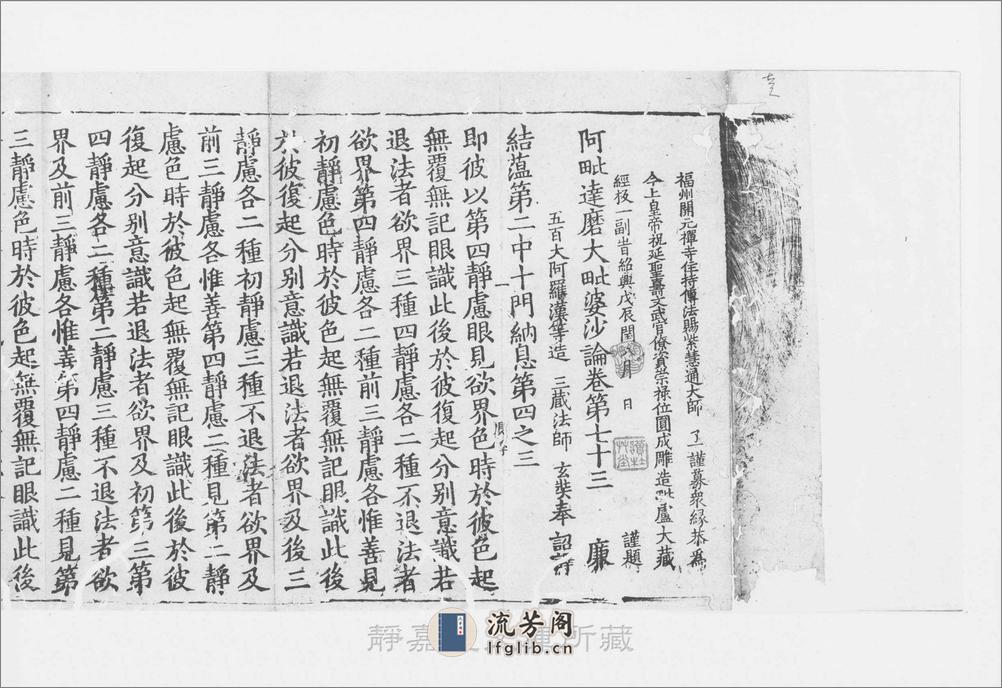 福州開元禪寺住持傳法賜紫慧通大師 了一謹募衆緣恭爲
今上皇帝祝延聖壽文武官僚資崇祿位圓成雕造毗盧大藏
經板一副旹紹興戊辰閏八月 日 謹題
阿毗達磨大毗婆沙論卷第七十三 廉
五百大阿羅漢等造 三藏法師 玄奘奉 詔譯
結蕰第二中十門納息第四之三
即彼以第四靜慮眼見欲界色時於彼色起
無覆無記眼識此後於彼復起分别意識若
退法者欲界三種四靜慮各二種不退法者
欲界第四靜慮各二種前三靜慮各惟善見
初靜慮色時於彼色起無覆無記眼識此後
於彼復起分别意識若退法者欲界及後三
靜慮各二種初靜慮三種不退法者欲界及
前三靜慮各惟善第四靜慮二種見第二靜
慮色時於彼色起無覆無記眼識此後於彼
復起分别意識若退法者欲界及初第三第
四靜慮各二種第二靜慮三種不退法者欲
界及前三靜慮各惟善第四靜慮二種見第
三靜慮色時於彼色起無覆無記眼識此後
流芳阁
lfglib.cn
靜嘉 所藏